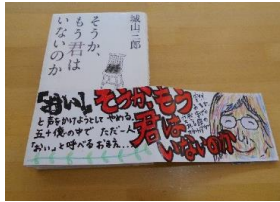 城山三郎
そうか、
もう君は
いないのか
「おい」
と声をかけようとして やめる。
五十億の中で ただ一人
「おぃ」と呼べる おまえ…
そうか、もう
君は
いないのか